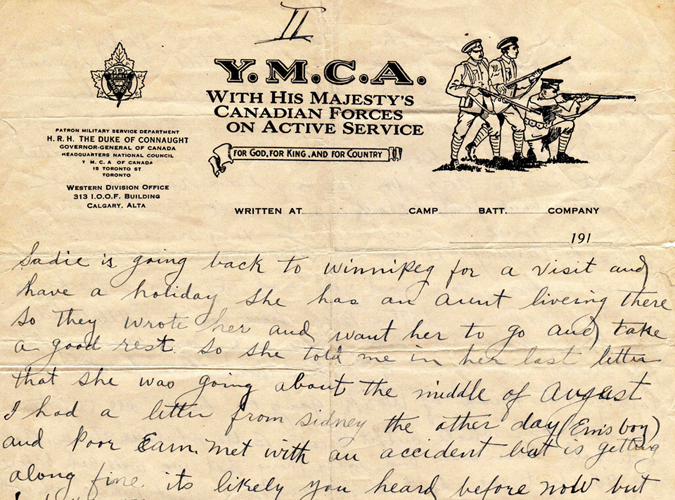 II
Y.M.C.A.
WITH HIS MAJESTY'S
CANADIAN FORCES
ON ACTIVE SERVICE
FOR GOD, FOR KING, AND FOR COUNTRY
PATRON MILITARY SERVICE DEPARTMENT
H. R. H. THE DUKE OF CONNAUGHT
GOVERNOR-GENERAL OF CANADA
HEADQUARTERS NATIONAL COUNCIL
Y M. C. A OF CANADA
15 TORONTO ST
TORONTO
WESTERN DIVISION OFFICE
313 I.O.O.F. BUILDING
CALGARY, ALTA
WRITTEN AT CAMP BATT. COMPANY
191
Sadie is going back to Winnipeg for a visit and
have a holiday she has an aunt liveing there
so they wrote her and want her to go and take
a good rest. so she told me in her last letter
that she was going about the middle of August
I had a letter from Sidney the other day (Em's boy)
and Poor Earn. met with an accident but is getting
along fine. its likely you heard before now but